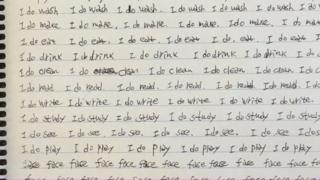 I do wash I do wash I do wash. I do wash I do wash I do wash I do w
I do make. I do make. I do make. I do make. I do make. I do
I do eat. I do eat. I do eat. I do eat. I do eat. I do eat.
I do drink I do drink I do drink I do drink I do drink I do
I do clean I do clean I do clean. I do clean. I do c
I do read I do read. I do read. I do read. I do read I do read
I do write I do write I do write I do write I do write.
I do study I do study I do study. I do study I do study
I do see. I do see. I do see. I do see. I do see I do s
I do play I do play I do play I do play I do play
face face face face face face face face face face
face face face face face face face